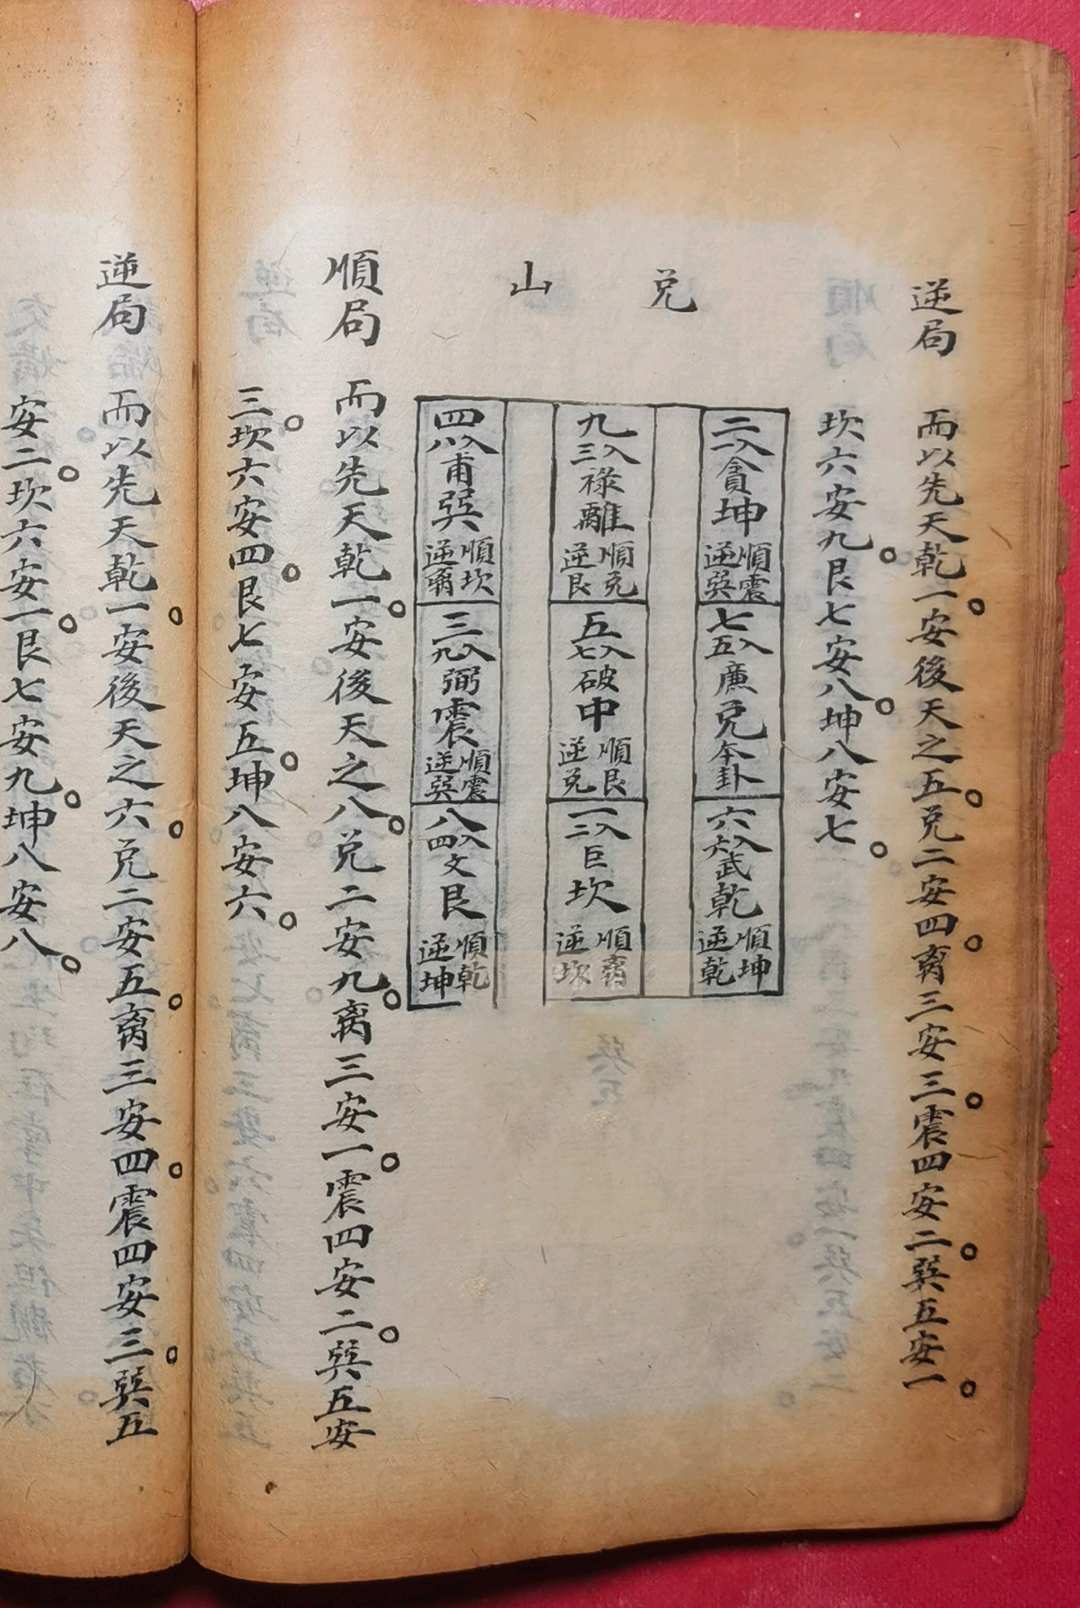 逆局　而以先天乾一安後天之五。兌二安四。离三安三。震四安二。巽五安一。
坎六安九。艮七安八。坤八安七。
兌山
二八貪坤 順震 逆巽
七五入廉兌本卦
六六入武乾 順坤 逆乾
九三入祿離 順兌 逆艮
五七入破中 順艮 逆兌
一二入巨坎 順离 逆坎
四八入甫巽 順坎 逆离
三九入弼震 順震 逆巽
八四入文艮 順乾 逆坤
順局　而以先天乾一。安後天之八。兌二安九。离三安一。震四安二。巽五安
三。坎六安四。艮七安五。坤八安六。
逆局　而以先天乾一。安後天之六。兌二安五。离三安四。震四安三。巽五
安二。坎六安一。艮七安九。坤八安八。